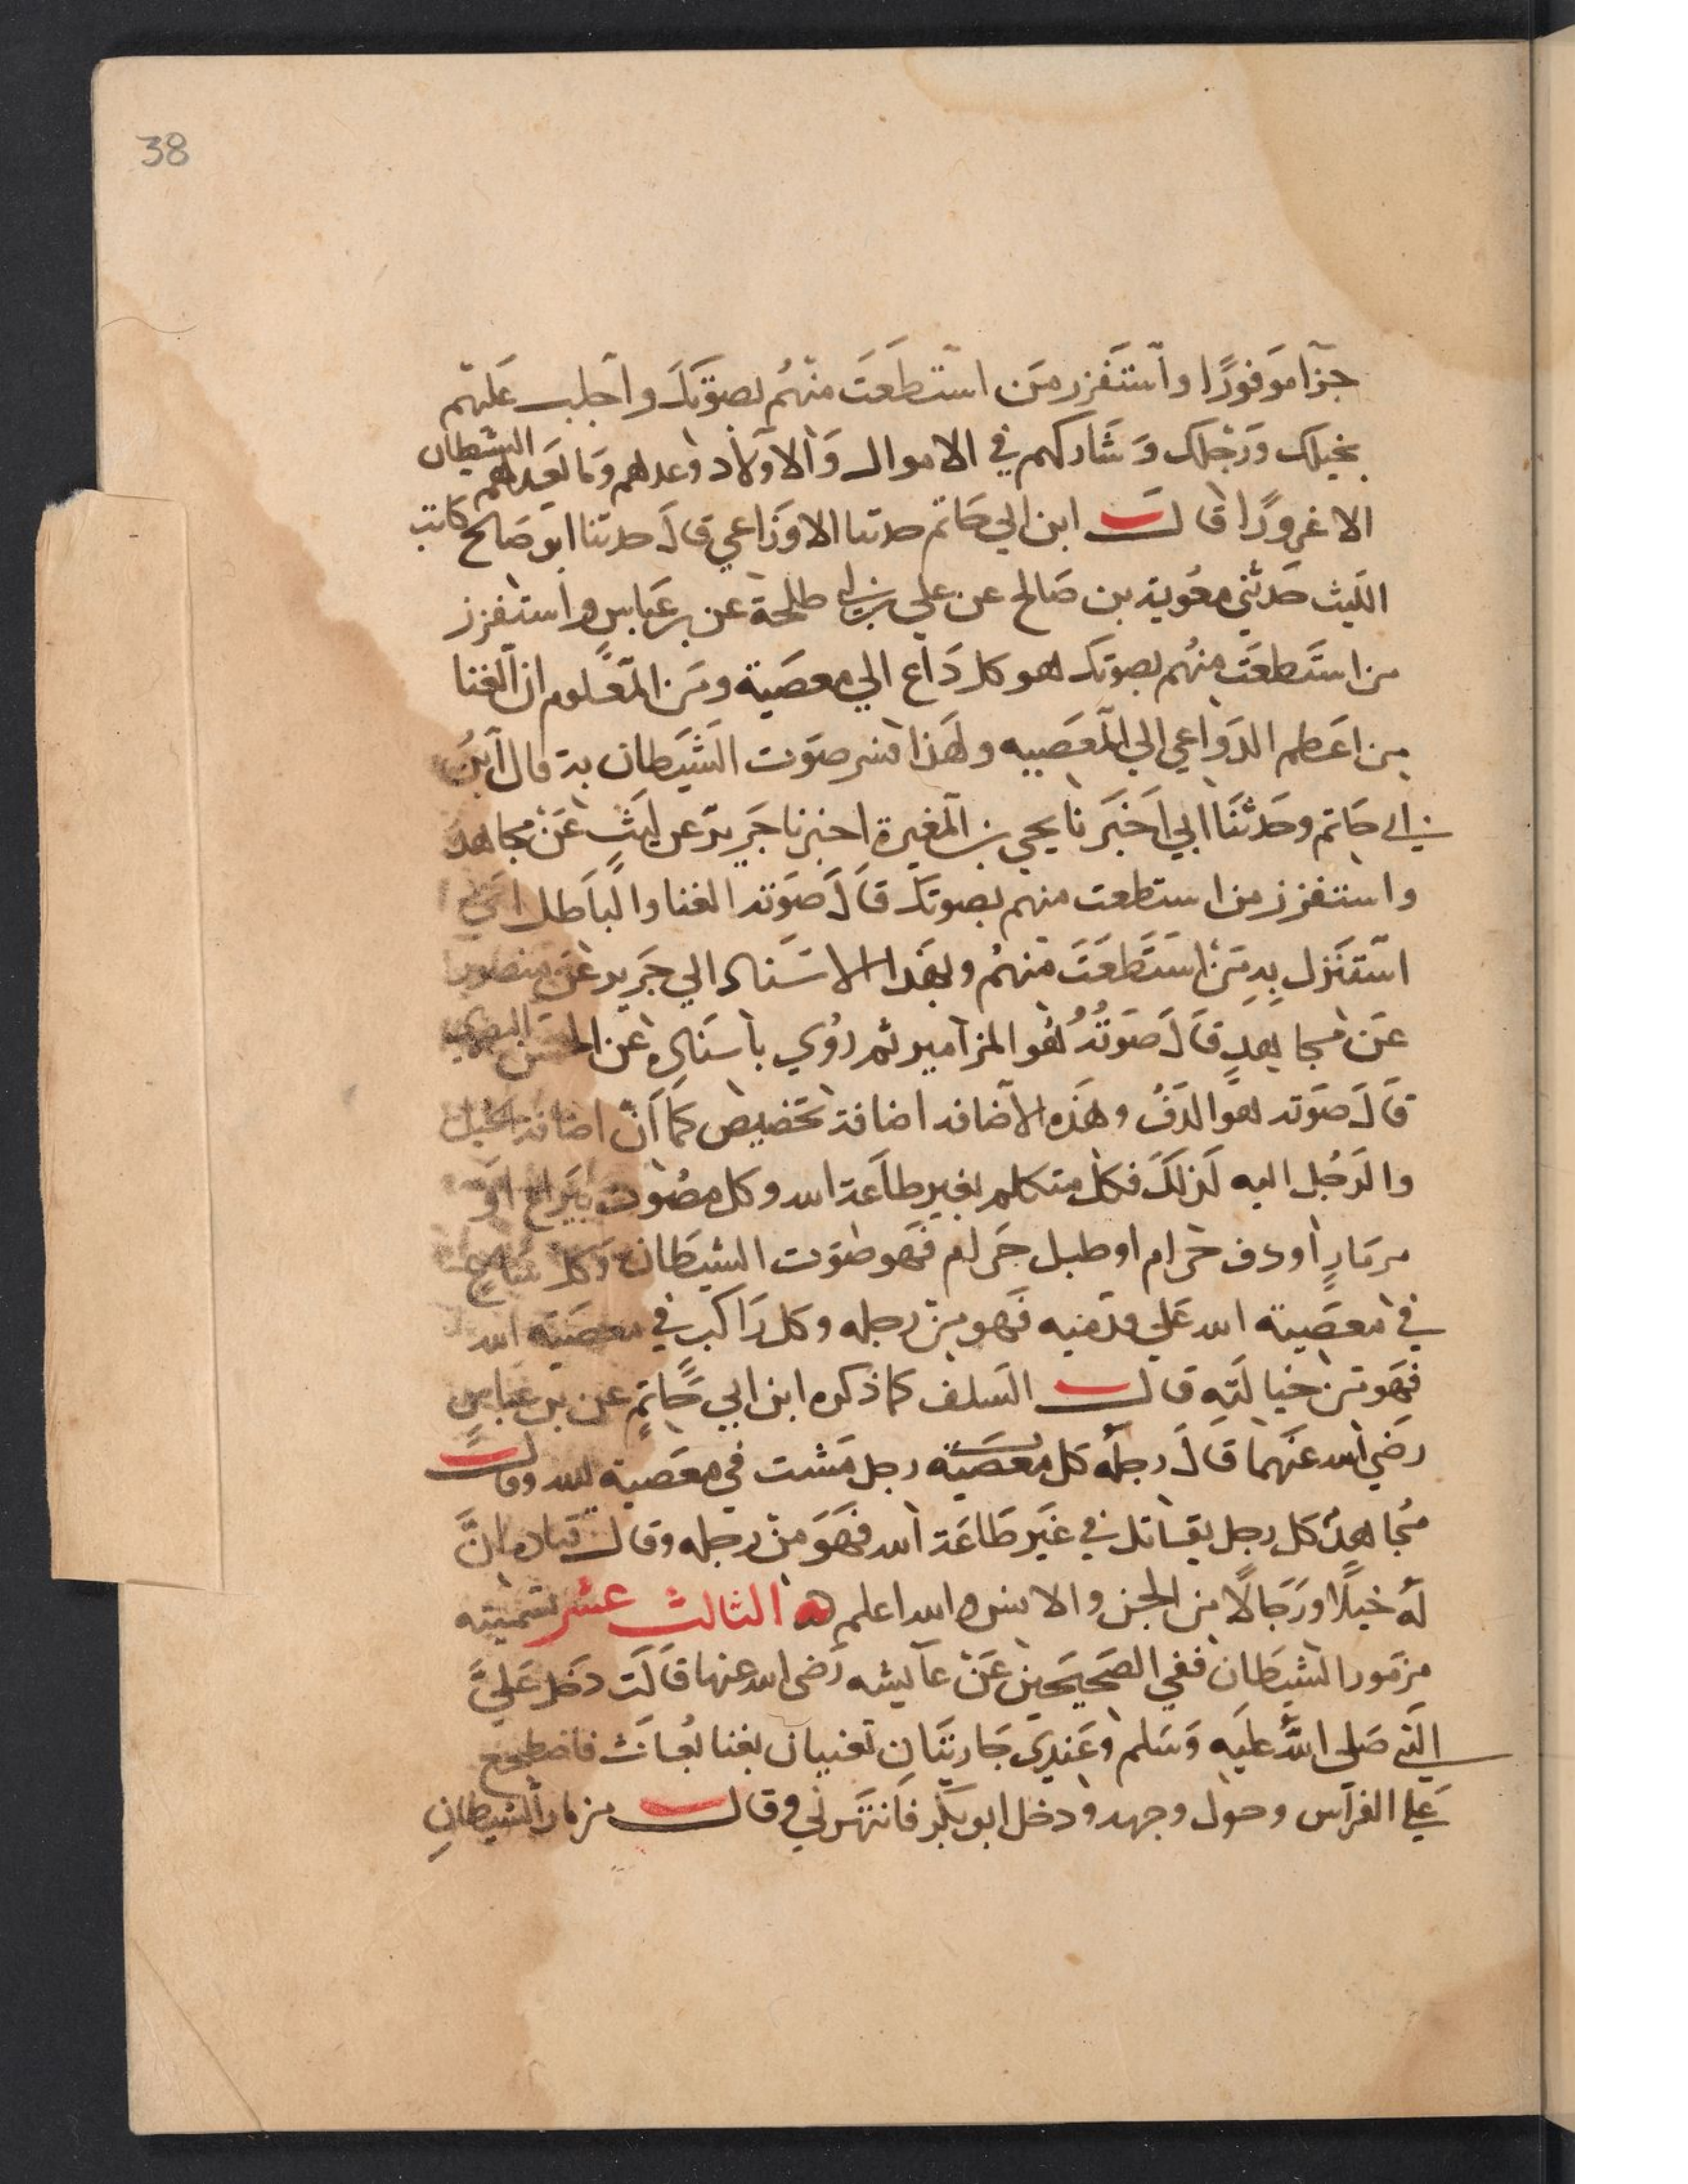 38
جزآ موفورًا واستفزر من استطعت منهم بصوتك واجلب عليهم
بخيلك ورجلك وشاركهم في الاموال والاولاد وعدهم وما يعدهم الشيطان
الا غرورًا قال ابن ابي حاتم حدثنا الاوزاعي قال حدثنا ابو صالح كاتب
الليث حدثني معوية بن صالح عن علي بن ابي طلحة عن بن عباس واستفزز
من استطعت منهم بصوتك هو كل داع الي معصية ومن المعلوم ان الغنا
من اعظم الدواعي الي المعصيه ولهذا فسر صوت الشيطان به قال ابن
ابي حاتم وحدثنا ابي اخبرنا يحيي بن المغيرة اخبرنا جرير عن ليث عن مجاهد
واستفزز من استطعت منهم بصوتك قال صوته الغنا والباطل اي
استنزل به من استطعت منهم وبهذا الاسناد الي جرير عن منصور
عن مجاهد قال صوته هو المزامير ثم روي باسناده عن الحسن البصري
قال صوته هو الدف وهذه الاضافه اضافة تخصيص كما ان اضافة الخيل
والرجل اليه كذلك فكل متكلم بغير طاعة الله وكل مصوت بيراع او
مزمارٍ أو دف حرام او طبل حرام فهو صوت الشيطان وكل ساع
في معصية الله علي قدميه فهو من رجله وكل راكب في معصية الله
فهو من خيالته قال السلف كما ذكره ابن ابي حاتم عن بن عباس
رضي الله عنهما قال رجله كل معصية رجل مشت في معصية الله وقال
مجاهد كل رجل يقاتل في غير طاعة الله فهو من رجله وقال قتاده ان
له خيلًا ورجالًا من الجن والانس والله اعلم الثالث عشر تسميته
مزمور الشيطان ففي الصحيحين عن عآيشه رضي الله عنها قالت دخل عليَّ
النبي صلي الله عليه وسلم وعندي جاريتان تغنيان بغنا بُعاث فاضطجع
علي الفراس وحول وجهه ودخل ابو بكر فانتهرني وقال مزمار الشيطان